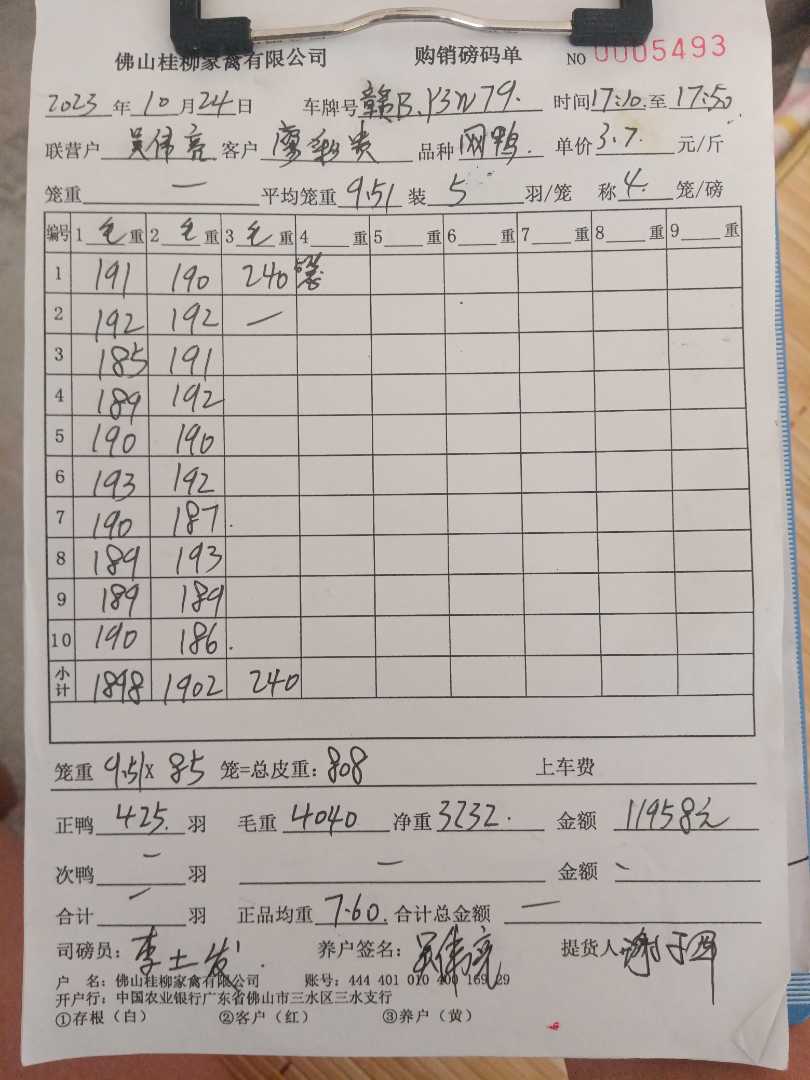 佛山桂柳家禽有限公司 购销磅码单 NO 0005493
2023年10月24日 车牌号 赣B.Y3W79. 时间17:10.至17:50
联营户 吴伟亮 客户 廖彩贵 品种 网鸭. 单价3.7.元/斤
笼重 一 平均笼重 9.51 装 5 羽/笼 称 4. 笼/磅
编号 1 毛 重 2 毛 重 3 毛 重 4 重 5 重 6 重 7 重 8 重 9 重
1 191 190 240 5笼
2 192 192 —
3 185 191
4 189 192
5 190 190
6 193 192
7 190 187.
8 189 193
9 189 189
10 190 186.
小计 1898 1902 240
笼重 9.51X 85 笼=总皮重:808 上车费
正鸭 425. 羽 毛重 4040 净重3232. 金额 11958元
次鸭 一 羽 一 金额 一
合计 一 羽 正品均重 7.60 合计总金额 一
司磅员: 李土发 养户签名: 吴伟亮 提货人:
户 名: 佛山桂柳家禽有限公司 账号: 444 401 010 400 169 29
开户行: 中国农业银行广东省佛山市三水区三水支行
①存根(白) ②客户(红) ③养户(黄)